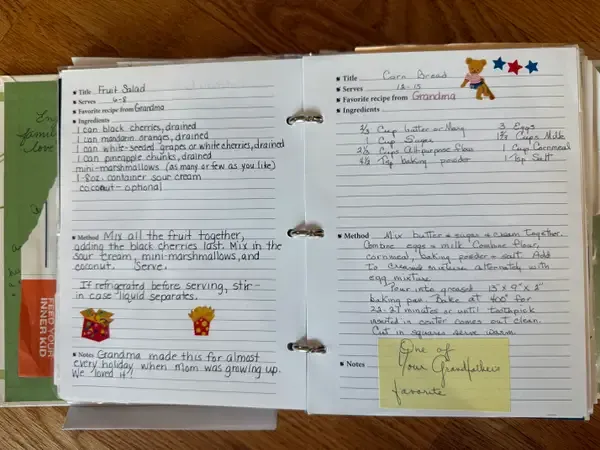 Title Fruit Salad
Serves 6-8
Favorite recipe from Grandma
Ingredients
1 can black cherries, drained
1 can mandarin oranges, drained
1 can white-seeded grapes or white cherries, drained
1 can pineapple chunks, drained
mini-marshmallows (as many or few as you like)
1-8oz. container sour cream
coconut-optional
Method Mix all the fruit together,
adding the black cherries last. Mix in the
sour cream, mini-marshmallows, and
coconut. Serve.
If refrigerated before serving, stir
in case liquid separates.
Notes Grandma made this for almost
every holiday when mom was growing up.
We loved it!
FEED YOUR
INNER KID
Title Corn Bread
Serves 12-15
Favorite recipe from Grandma
Ingredients
2/3 Cup butter or 3 Eggs
1 Cup Sugar 1 2/3 Cups Milk
2 1/3 Cups All-purpose flour 1 Cup Cornmeal
4 1/2 Tsp baking powder 1 Tsp Salt
Method Mix butter & sugar & cream together.
Combine eggs & milk. Combine flour,
cornmeal, baking powder & salt. Add
to creamed mixture alternately with
egg mixture.
Pour into greased 13" x 9" x 2"
baking pan. Bake at 400° for
22-27 minutes or until toothpick
inserted in center comes out clean.
Cut in squares serve warm.
Notes
One of
Your Grandfather's
favorite